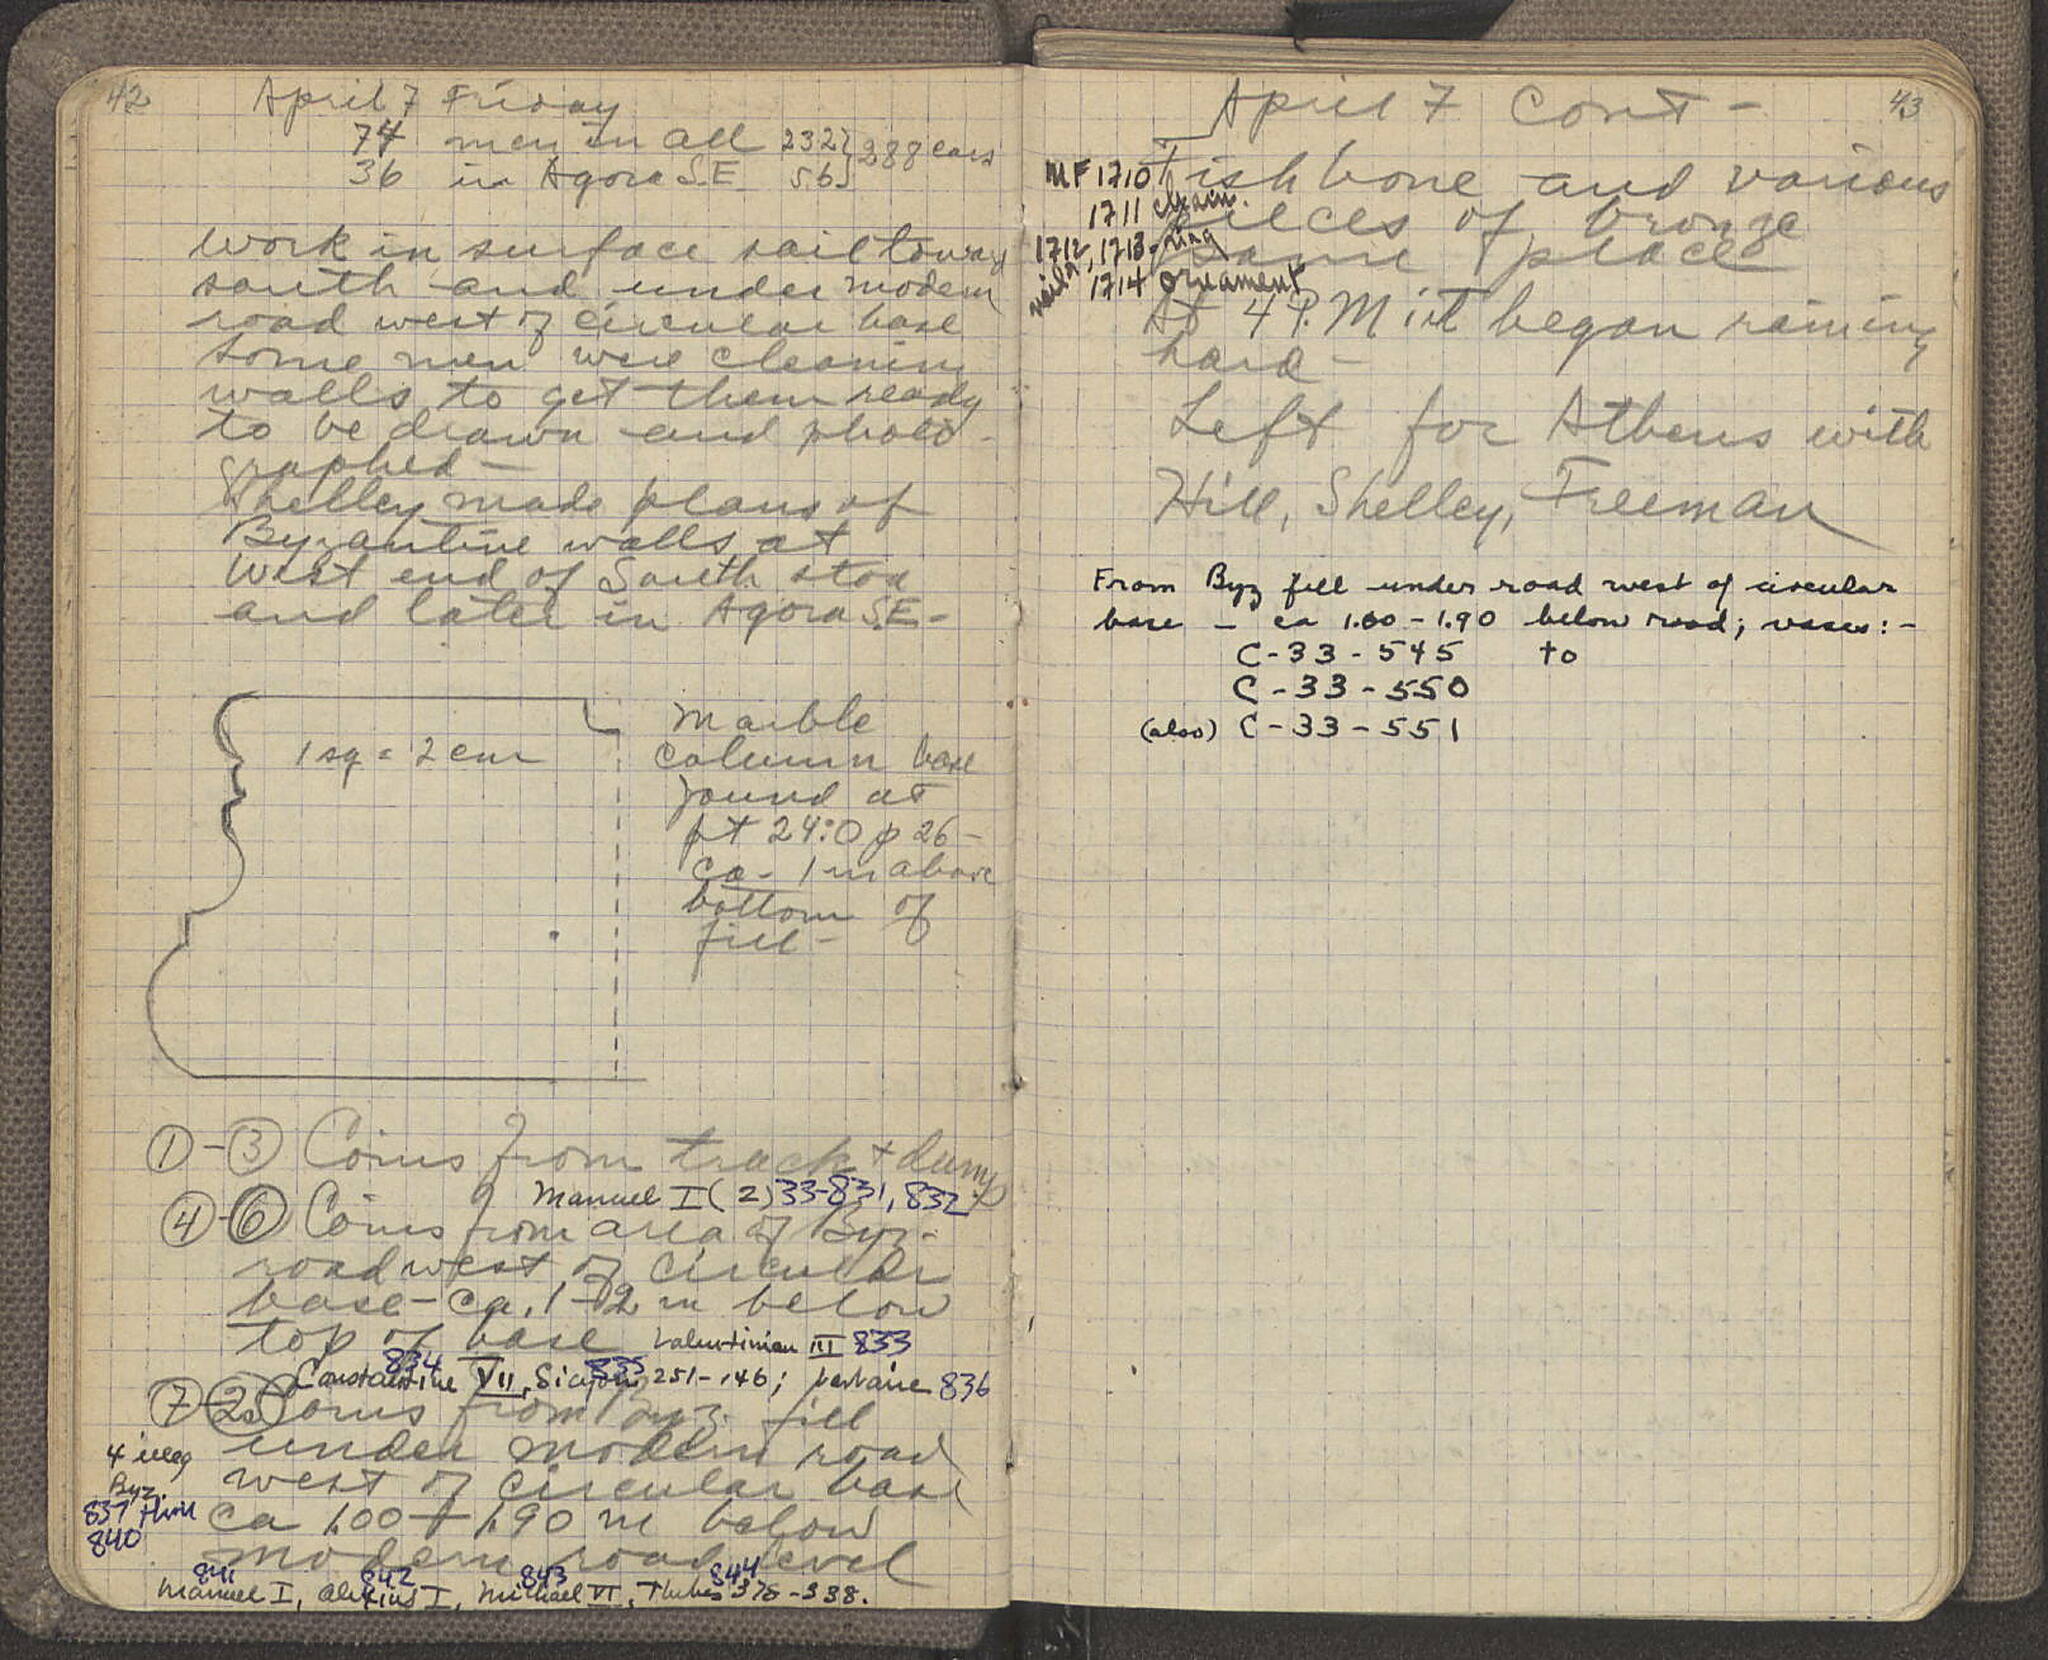 42
April 7 Friday
74 men in all 232 } 288 cars
36 in Agora S.E. 56
work in surface soil toward
south and under modern
road west of circular base
some men were cleaning
walls to get them ready
to be drawn and photo-
graphed —
Shelley made plans of
Byzantine walls at
West end of South stoa
and later in Agora S.E. -
1 sq = 2 cm
Marble
column base
found at
pt 24:0 p 26 -
ca - 1 m above
bottom of
fill -
① - ③ Coins from track + dump
Manuel I (2) 33-831, 832
④ - ⑥ Coins from area of Byz.
road west of circular
base - ca. 1 - 2 m below
top of base Valentinian III 833
834 835
Constantine VII, Sicyon 251-146; 836
⑦ - ⑳ Coins from Byz. fill
under modern road
west of circular base
ca 1.00 + 1.90 m below
modern road level
4 illeg
Byz.
837 thru
840
841 842 843 844
Manuel I, Alexius I, Michael VI, Thebes 378-338.
43
April 7 Cont -
Fishbone and various
pieces of bronze
same place
MF 1710
1711 chain.
1712, 1713 - ring
nails
1714 ornament
At 4 P.M it began raining
hard -
Left for Athens with
Hill, Shelley, Freeman
From Byz fill under road west of circular
base - ca 1.00 - 1.90 below road; vases: -
C-33-545 to
C-33-550
(also) C-33-551